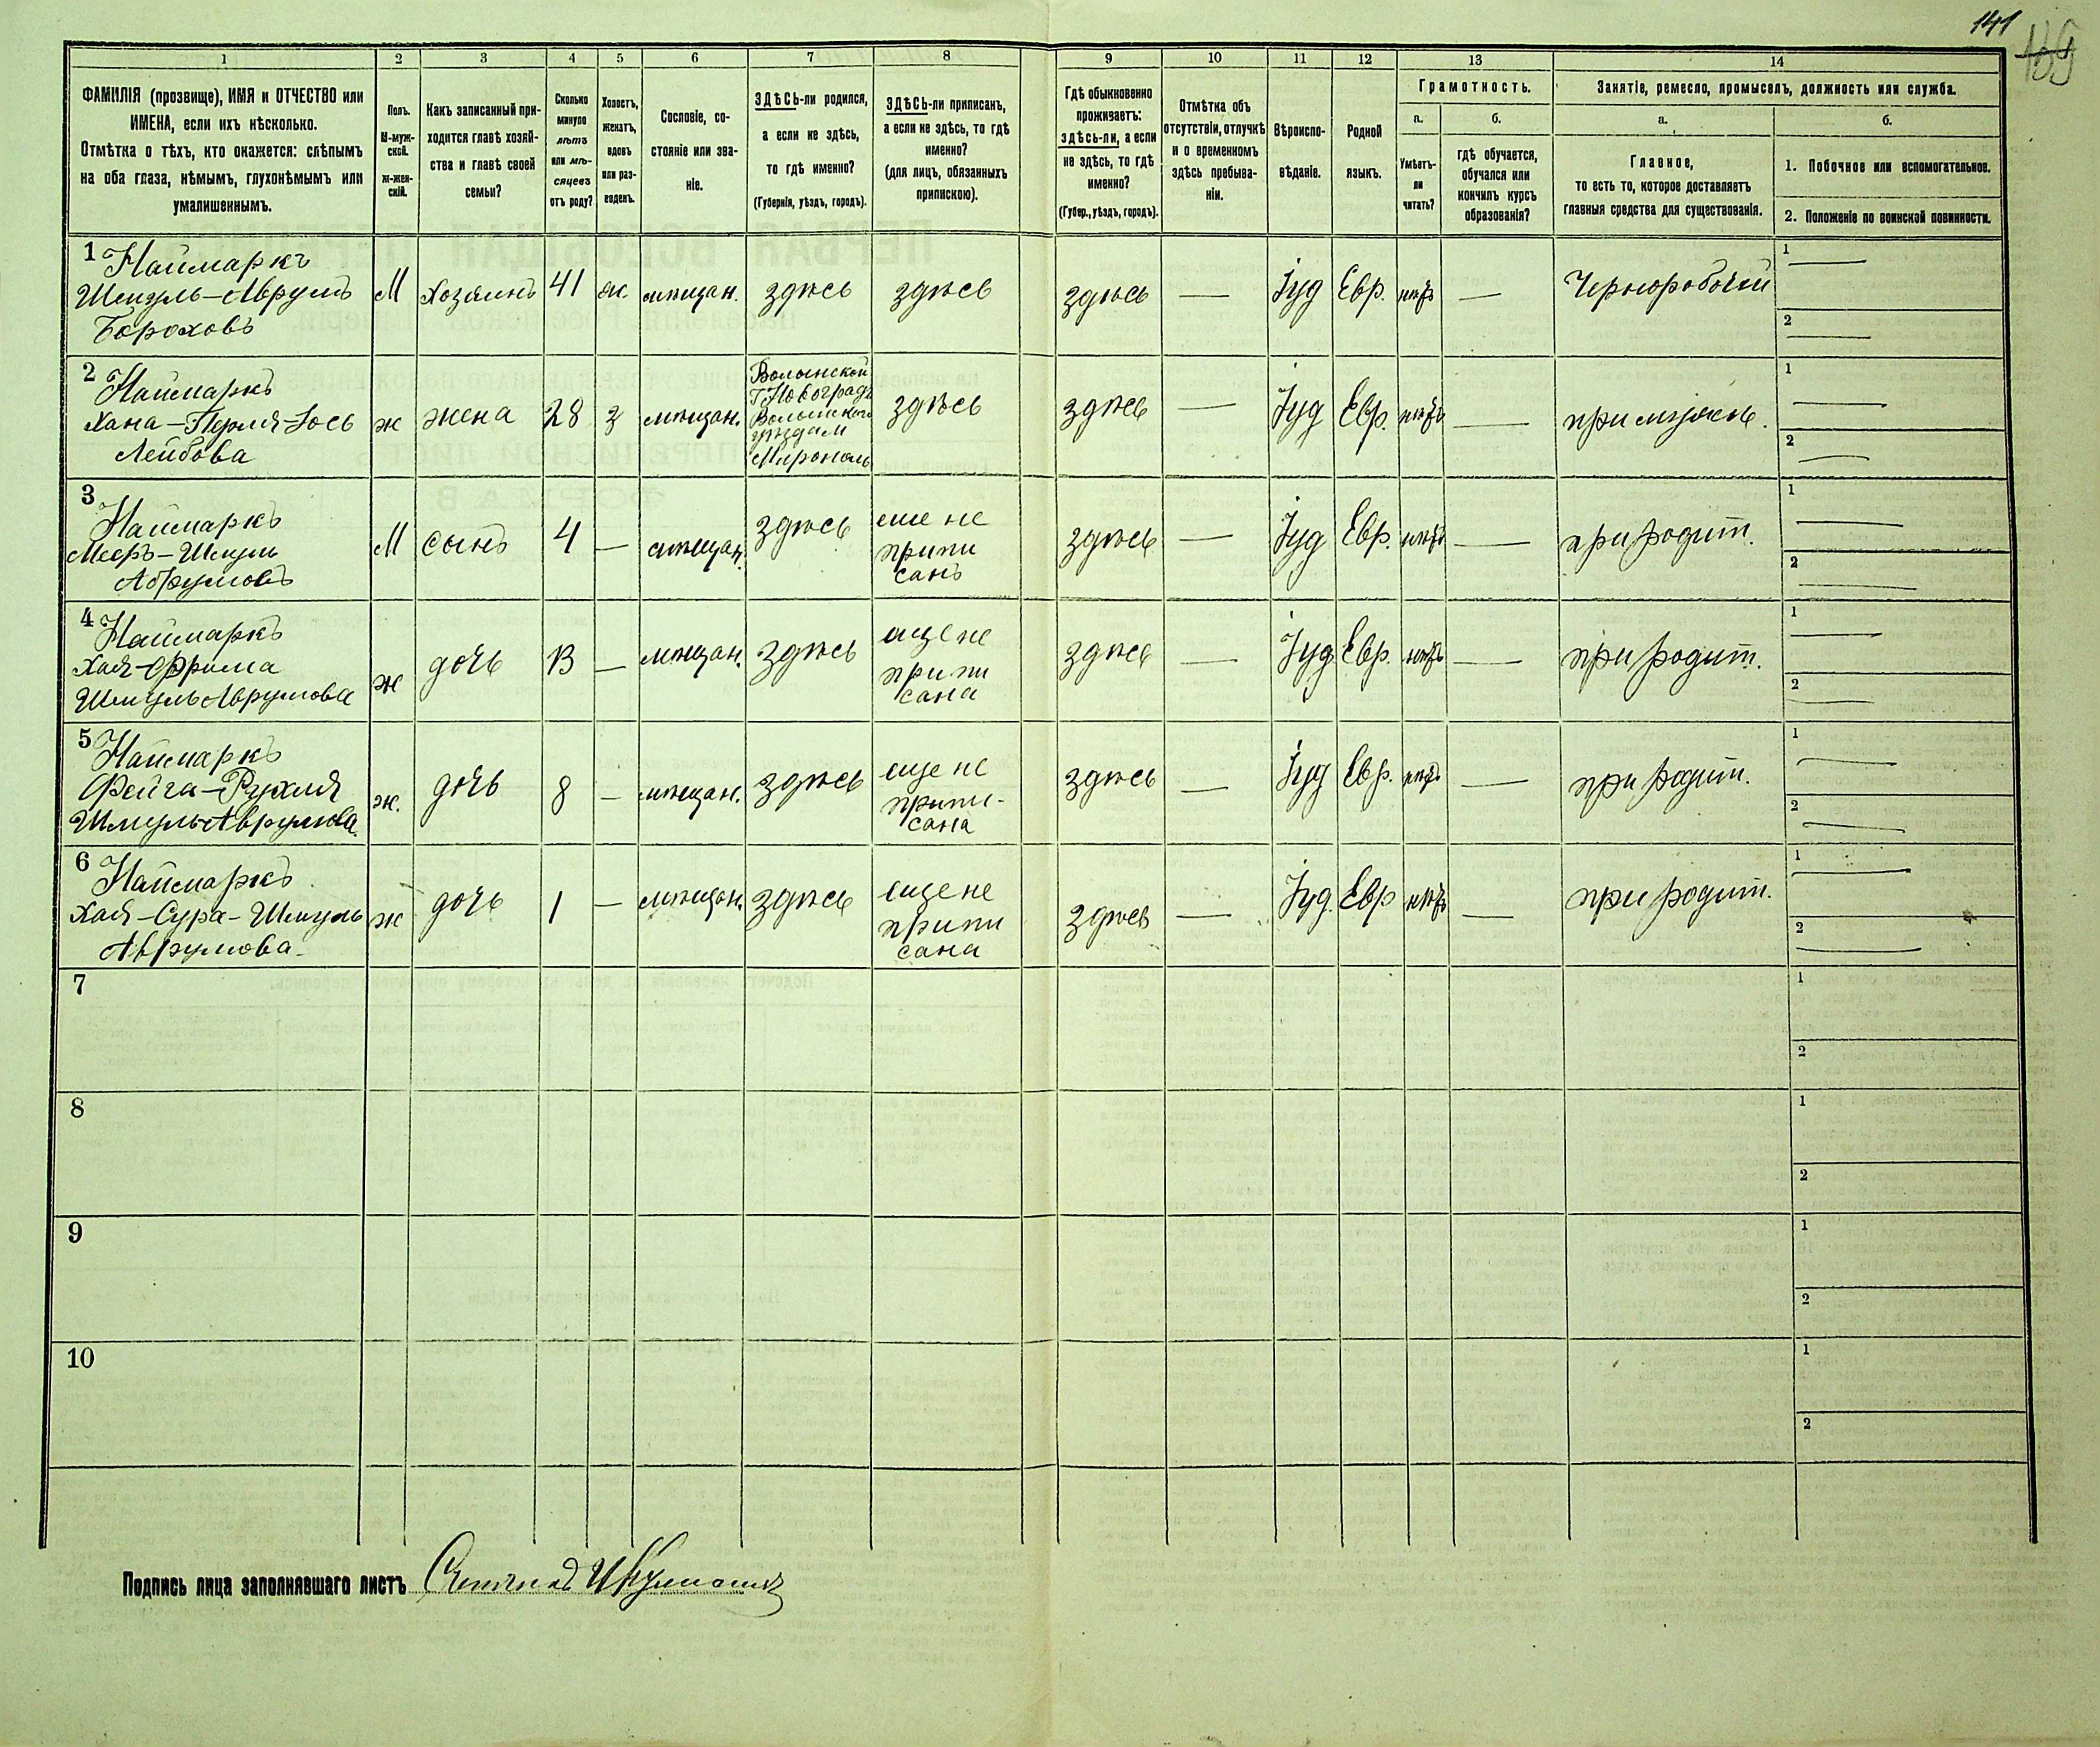 141
139
1
2
3
4
5
6
7
8
9
10
11
12
13
14
ФАМИЛІЯ (прозвище), ИМЯ и ОТЧЕСТВО или
ИМЕНА, если ихъ нѣсколько.
Отмѣтка о тѣхъ, кто окажется: слѣпымъ
на оба глаза, нѣмымъ, глухонѣмымъ или
умалишеннымъ.
Полъ.
М-муж-
ской.
ж-жен-
скій.
Какъ записанный при-
ходится главѣ хозяй-
ства и главѣ своей
семьи?
Сколько
минуло
лѣтъ
или мѣ-
сяцевъ
отъ роду?
Холостъ,
женатъ,
вдовъ
или раз-
веденъ.
Сословіе, со-
стояніе или зва-
ніе.
ЗДѢСЬ-ли родился,
а если не здѣсь,
то гдѣ именно?
(Губернія, уѣздъ, городъ).
ЗДѢСЬ-ли приписанъ,
а если не здѣсь, то гдѣ
именно?
(для лицъ, обязанныхъ
припискою).
Гдѣ обыкновенно
проживаетъ:
здѣсь-ли, а если
не здѣсь, то гдѣ
именно?
(Губер., уѣздъ, городъ).
Отмѣтка объ
отсутствіи, отлучкѣ
и о временномъ
здѣсь пребыва-
ніи.
Вѣроиспо-
вѣданіе.
Родной
языкъ.
Грамотность.
а.
Умѣетъ-
ли
читать?
б.
гдѣ обучается,
обучался или
кончилъ курсъ
образованія?
Занятіе, ремесло, промыселъ, должность или служба.
а.
Главное,
то есть то, которое доставляетъ
главныя средства для существованія.
б.
1. Побочное или вспомогательное.
2. Положеніе по воинской повинности.
1 Наймаркъ
Шмуль-Аврумъ
Борохова
М
хозяинъ
41
ж.
мѣщан.
здѣсь
здѣсь
здѣсь
—
Іуд
Евр.
нѣтъ
—
Чернорабочій
1 —
2 —
2 Наймаркъ
Хана-Перля-Іось
Лейбова
ж
жена
28
з
мѣщан.
Волынской
Г Новоградъ
Волынского
уѣзда м
Мирополь
здѣсь
здѣсь
—
Іуд
Евр.
нѣтъ
—
при мужѣ.
1 —
2 —
3 Наймаркъ
Мееръ-Шмуль
Аврумовъ
М
сынъ
4
—
мѣщан.
здѣсь
еще не
припи
санъ
здѣсь
—
Іуд
Евр.
нѣтъ
—
при родит.
1 —
2 —
4 Наймаркъ
Хая-Фрима
Шмуль Аврумова
ж
дочь
13
—
мѣщан.
здѣсь
еще не
припи
сана
здѣсь
—
Іуд
Евр.
нѣтъ
—
при родит.
1 —
2 —
5 Наймаркъ
Фейга-Рухля
Шмуль Аврумова.
ж.
дочь
8
—
мѣщан.
здѣсь
еще не
припи-
сана
здѣсь
—
Іуд
Евр.
нѣтъ
—
при родит.
1 —
2 —
6 Наймаркъ
Хая-Сура-Шмуль
Аврумова
ж
дочь
1
—
мѣщан.
здѣсь
еще не
припи
сана
здѣсь
—
Іуд.
Евр
нѣтъ
—
при родит.
1 —
2 —
7
1
2
8
1
2
9
1
2
10
1
2
Подпись лица заполнявшаго листъ